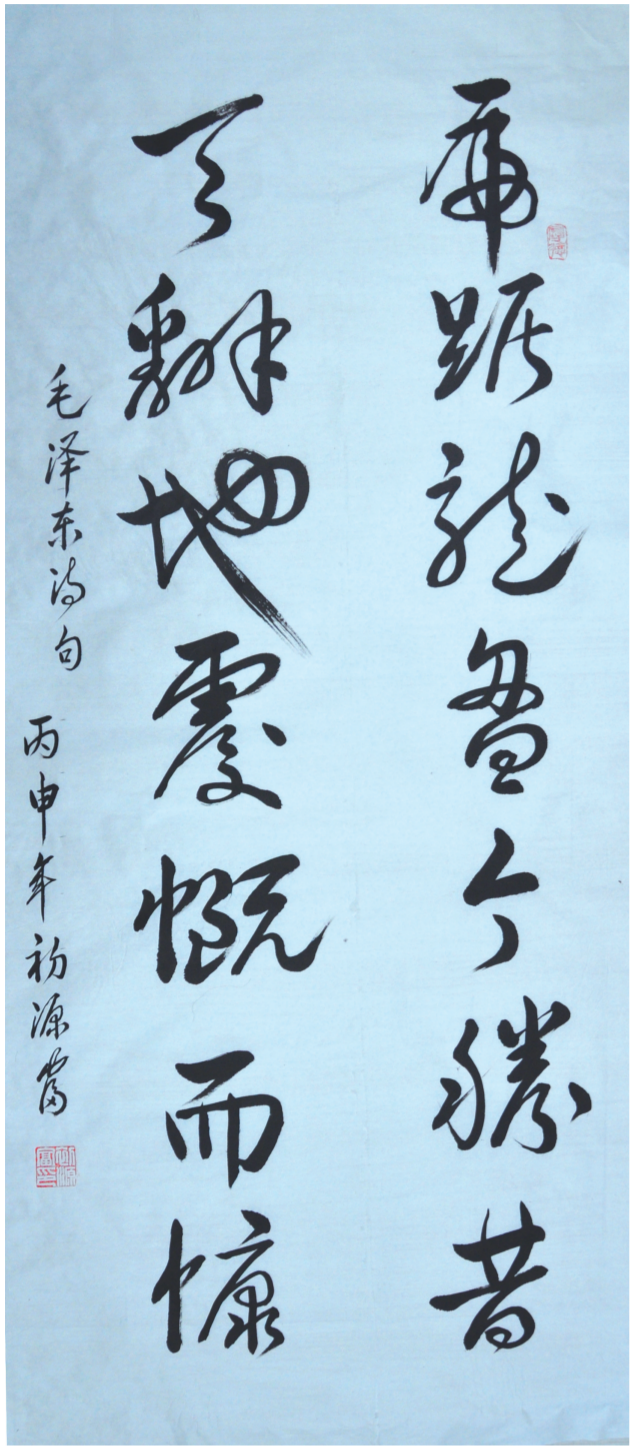 虎踞龍盘今勝昔
天翻地覆慨而慷
毛泽东诗句
丙申年初源富